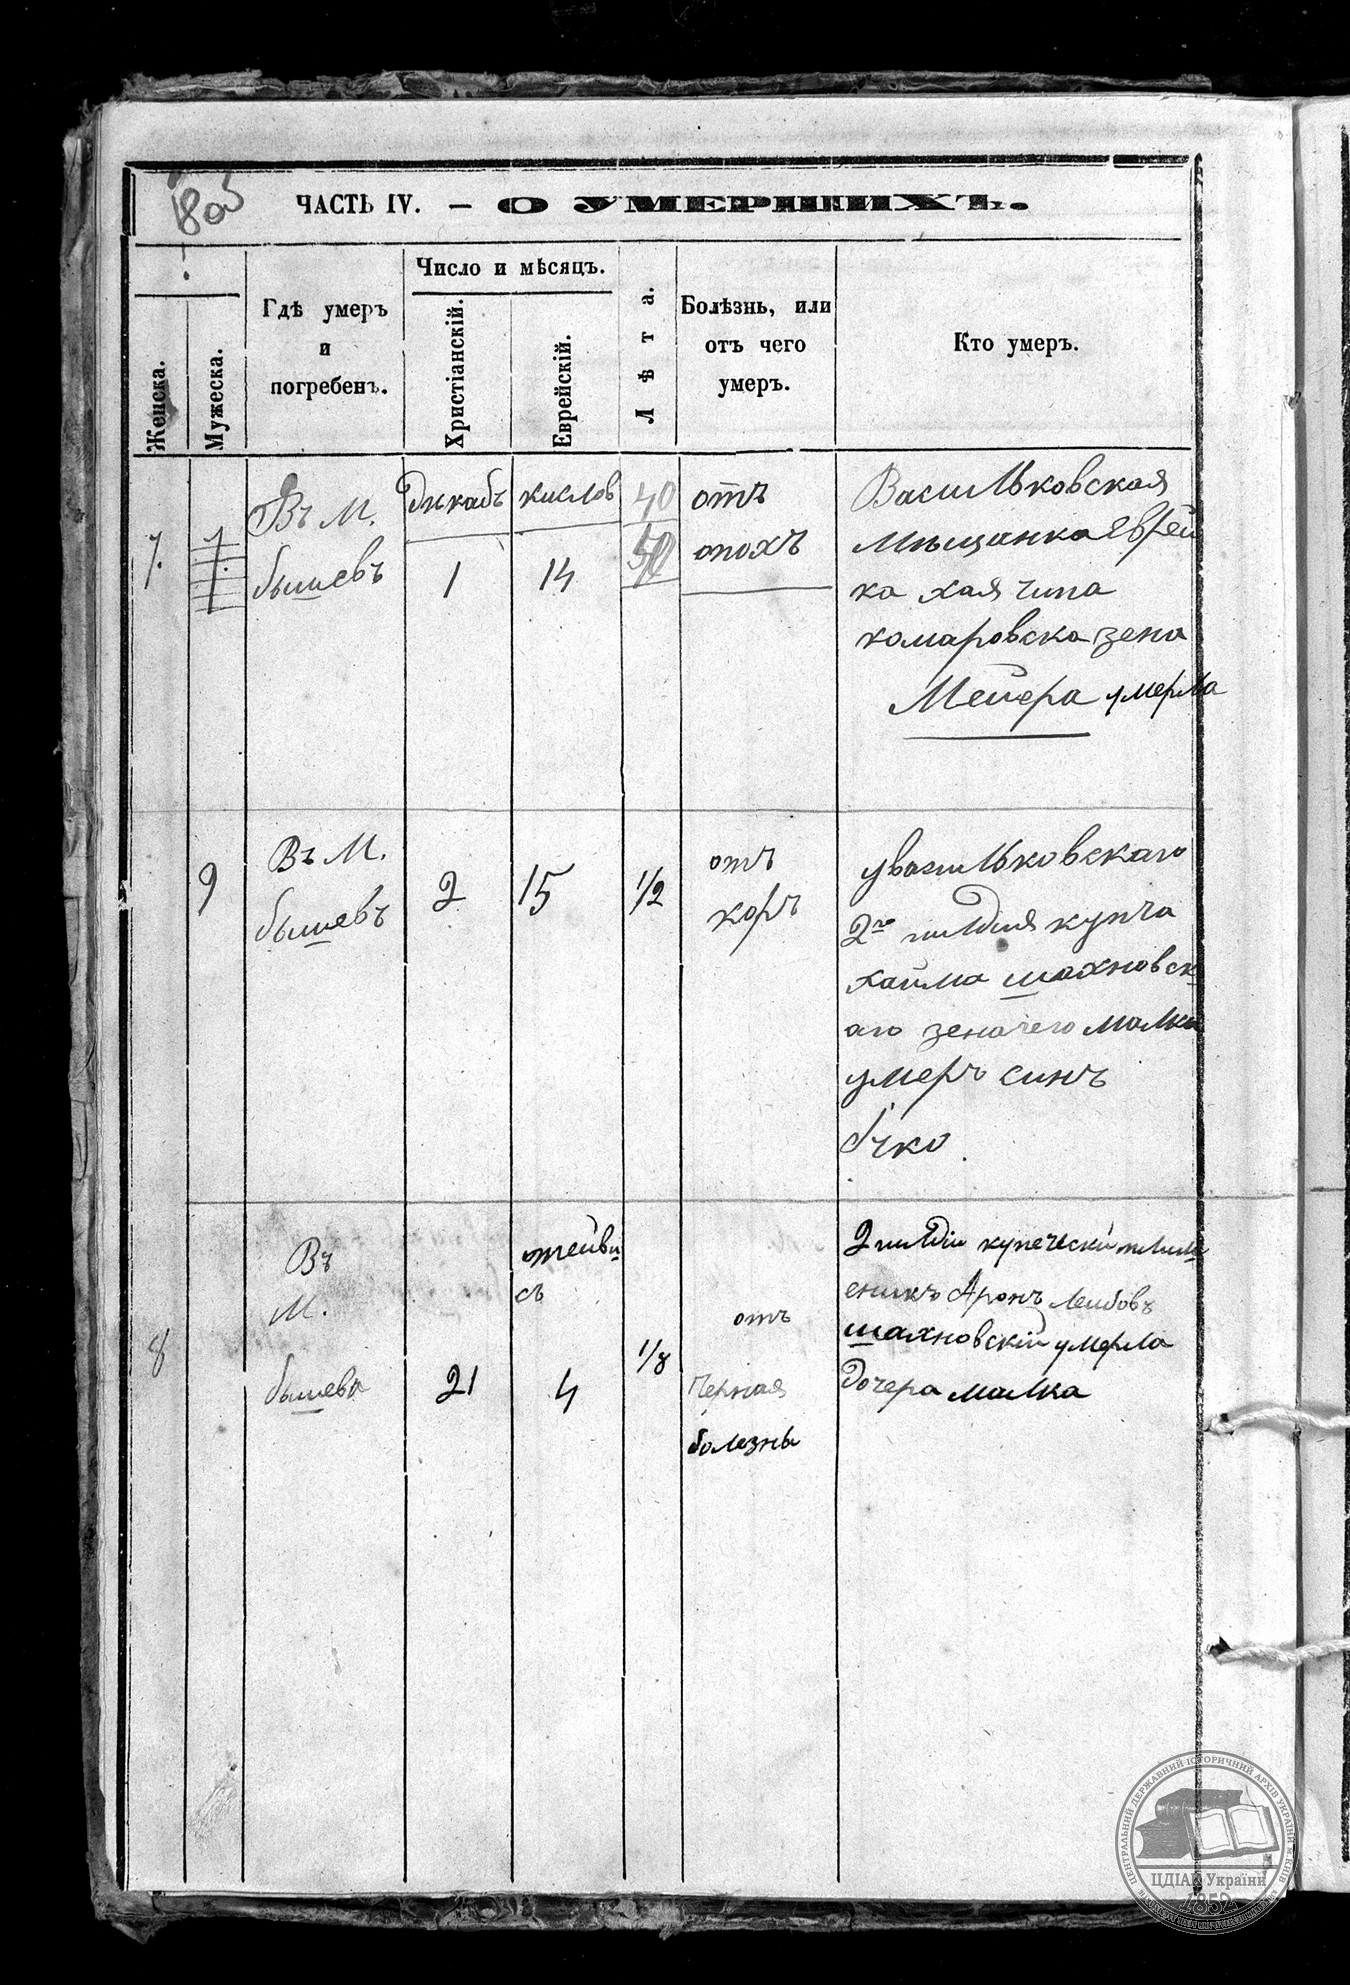 ЧАСТЬ IV. — О УМЕРШИХЪ.
Женска.
Мужеска.
Гдѣ умеръ
и
погребенъ.
Число и мѣсяцъ.
Христіанскій.
Еврейскій.
Лѣта.
Болѣзнь, или
отъ чего
умеръ.
Кто умеръ.
7.
Въ М.
бышевъ
декабъ
1
кислов
14
40
50
отъ
опохъ
Васильковская
мещанка еврей
ка хая чипа
комаровска зена
Меиера умерла
9
Въ М.
бышевъ
2
15
1/2
отъ
коръ
у васильковскаго
2го гилдия купча
хаима шахновск
аго зена его малка
умеръ синъ
8
Въ
М.
бышева
21
4
1/8
отъ
Черная
болезнь
2 гилдіи купечески
Аронъ Леибовъ
шахновскій умерла
дочера малка
ЦЕНТРАЛЬНИЙ ДЕРЖАВНИЙ ІСТОРИЧНИЙ АРХІВ УКРАЇНИ м. КИЇВ
ЦДІАК України
1852